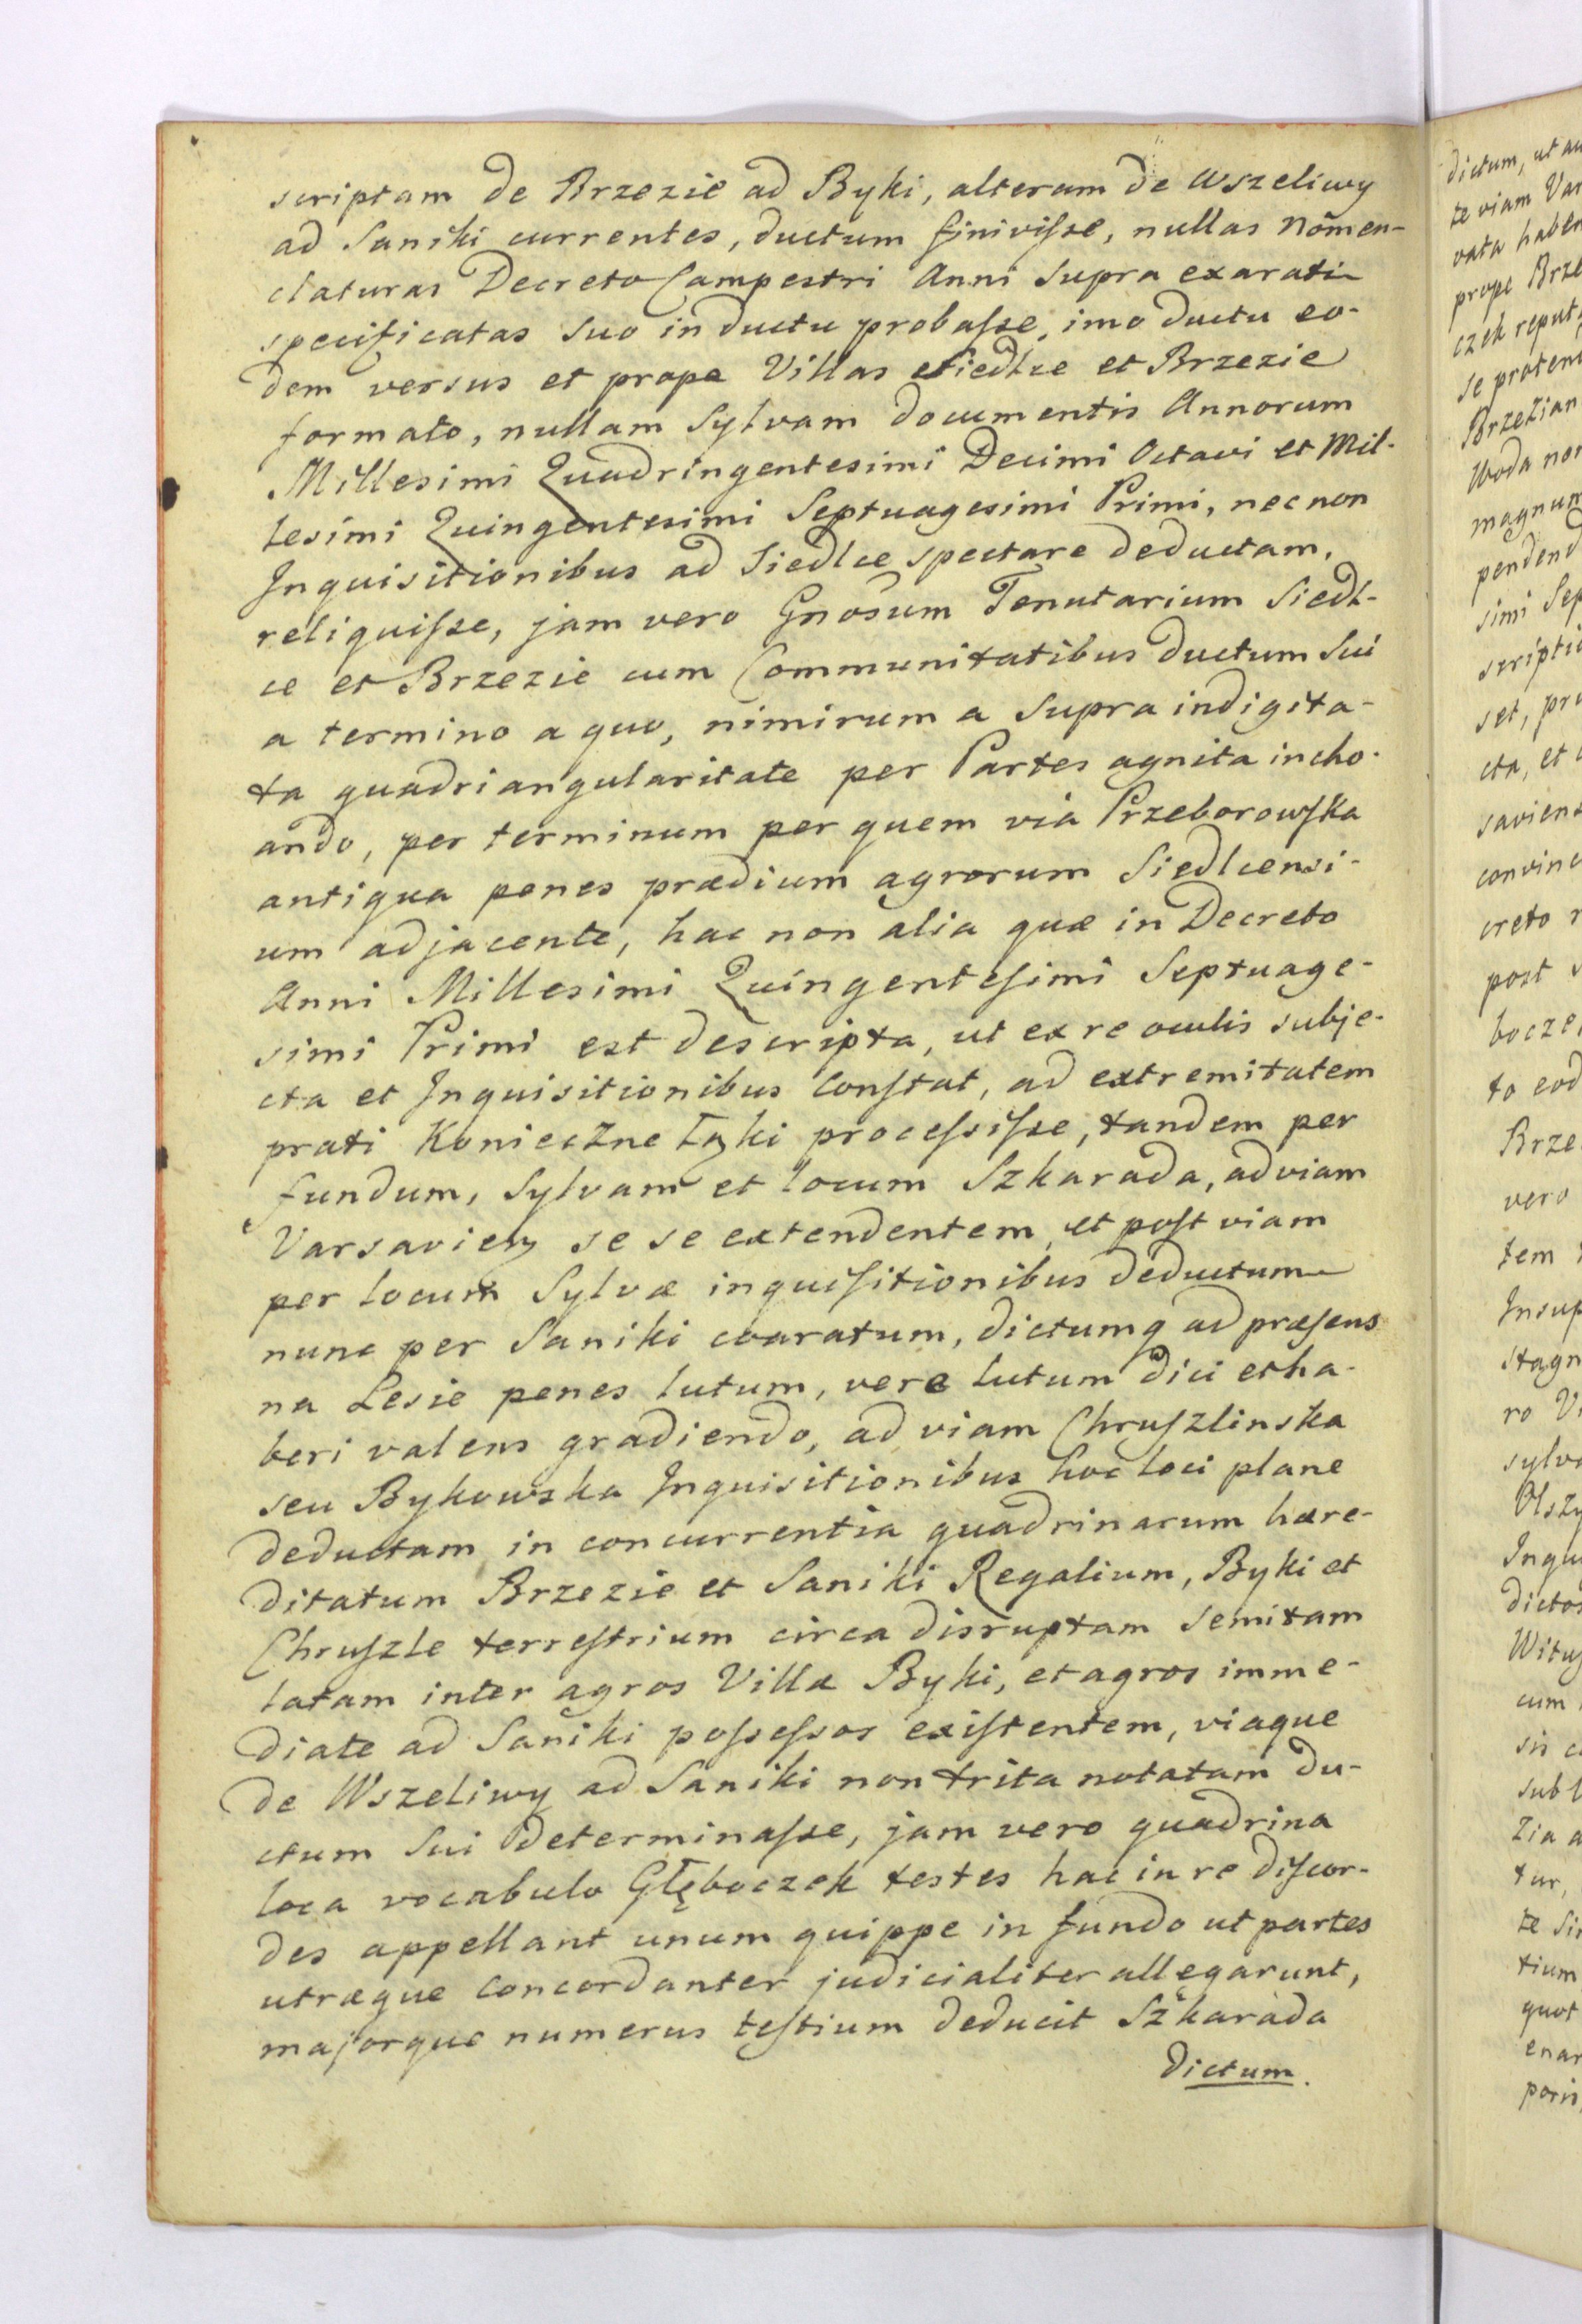 scriptam de Brzezie ad Byki, alteram de Wszeliwy
ad Saniki currentes, ductum finiviſse, nullas nōmen-
claturas Decreto Campestri Anni Supra exarati
specificatas Suo in ductu probaſse, imo ductu eo-
dem versus et prope Villas Siedlce et Brzezie
formato, nullam Sylvam documentis Annorum
Millesimi Quadringentesimi Decimi Octavi et Mil-
lesimi Quingentesimi Septuagesimi Primi, nec non
Inquisitionibus ad Siedlce spectare deductam,
reliquiſse, jam vero Gnōsum Tenutarium Siedl-
ce et Brzezie cum Communitatibus ductum Sui
a termino a quo, nimirum a Supra indigita-
ta quadriangularitate per Partes agnita incho-
ando, per terminum per quem via Przeborowſka
antiqua penes prædium agrorum Siedlcensi-
um adjacente, hac non alia quæ in Decreto
Anni Millesimi Quingenteſimi Septuage-
simi Primi est descripta, ut ex re oculis subje-
cta et Inquisitionibus Conſtat, ad extremitatem
prati Konieczne Łąki proceſsiſse, tandem per
fundum, Sylvam et locum Szkarada, ad viam
Varsavien se se extendentem, et poſt viam
per locum Sylvæ inquiſitionibus deductum
nunc per Saniki exaratum, dictumq ad præſens
na Lesie penes lutum, vere lutum dici et ha-
beri valens gradiendo, ad viam Chruſzlinska
seu Bykowska Inquisitionibus hoc loci plane
deductam in concurrentia quadrinarum hære-
ditatum Brzezie et Saniki Regalium, Byki et
Chruſzle terreſtrium circa disruptam Semitam
latam inter agros Villæ Byki, et agros imme-
diate ad Saniki poſseſsos exiſtentem, viaque
de Wszeliwy ad Saniki non trita notatam du-
ctum Sui determinaſse, jam vero quadrina
loca vocabulo Głęboczek testes hac in re diſcor-
des appellant unum quippe in fundo ut partes
utræque Concordanter judicialiter allegarunt,
majorque numerus teſtium deducit Szkarada
dictum.